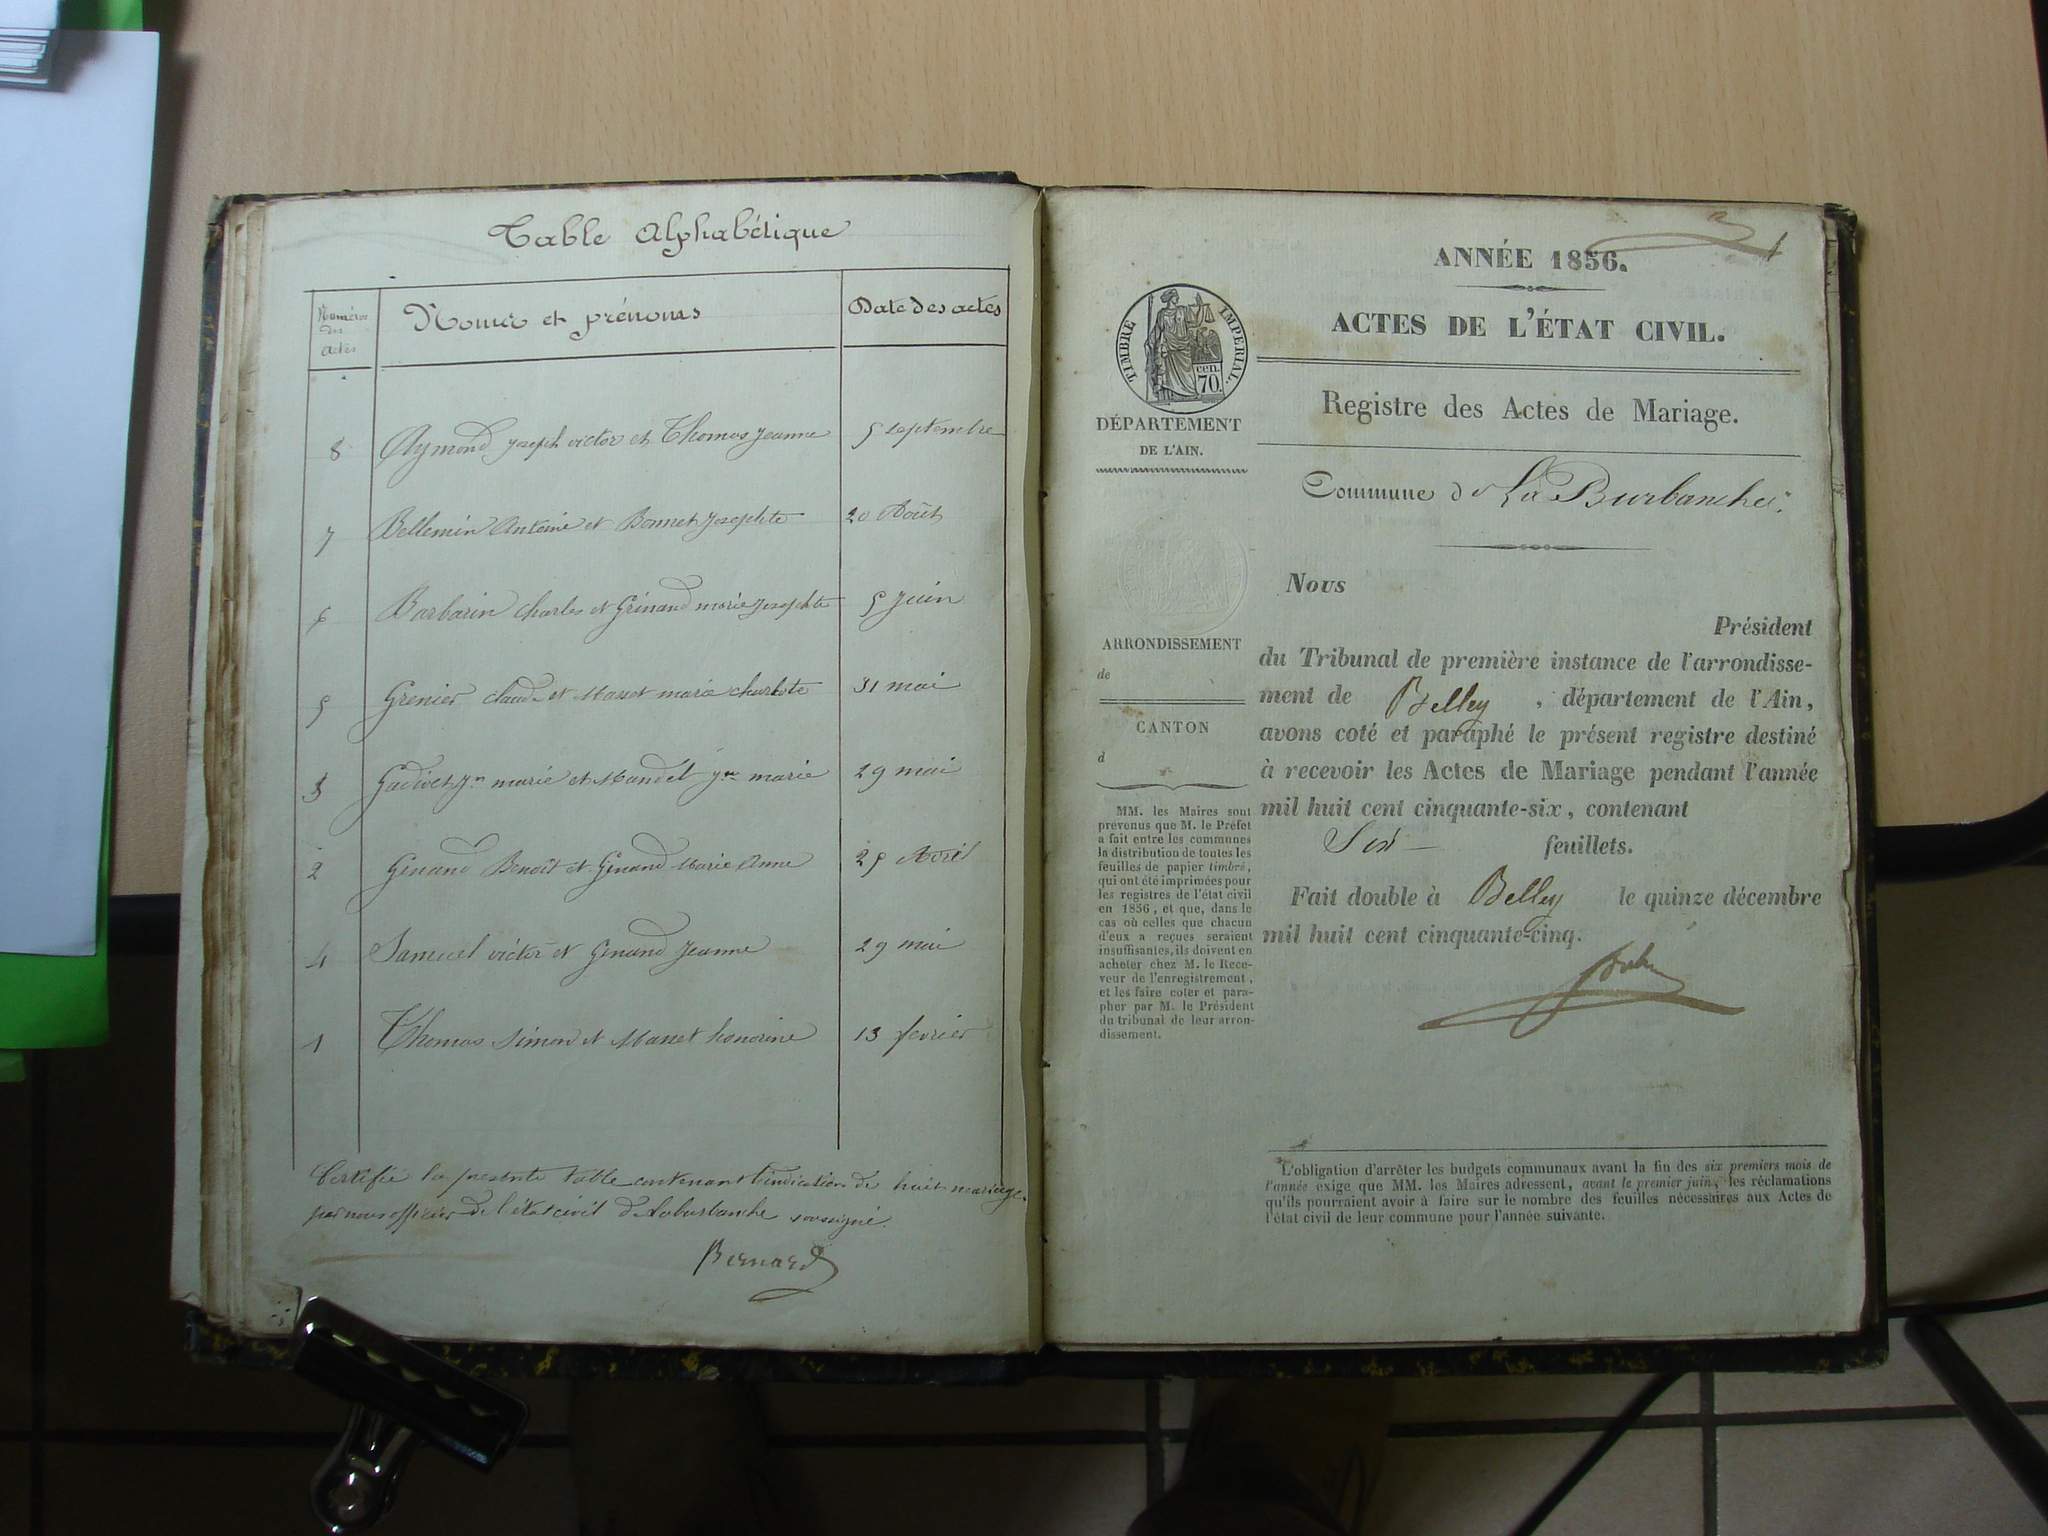 Table Alphabétique
Numéros des actes
Noms et prénoms
Date des actes
8 Aymond Joseph victor et Thomas Jeanne 5 septembre
7 Bellemin Antoine et Bonnet Josephte 20 Août
6 Barbarin Charles et Grinand marie Josephte 5 Juin
5 Grenier claude et Masset marie charlote 31 mai
3 marie et marie 29 mai
2 Ginand Benoît et Ginand Marie Anne 25 Avril
4 Samuel victor et Genand Jeanne 29 mai
1 Thomas Simon et Masset honorine 13 fevrier
Certifié la presente table contenant l'indication de huit mariage
par nous officier de l'état civil de Laburbanche soussigné.
Bernard
1
ANNÉE 1856.
ACTES DE L'ÉTAT CIVIL.
Registre des Actes de Mariage.
Commune de La Burbanche
TIMBRE IMPERIAL.
cen. 70.
DÉPARTEMENT
DE L'AIN.
ARRONDISSEMENT
de
CANTON
d
MM. les Maires sont
prévenus que M. le Préfet
a fait entre les communes
la distribution de toutes les
feuilles de papier timbré,
qui ont été imprimées pour
les registres de l'état civil
en 1856, et que, dans le
cas où celles que chacun
d'eux a reçues seraient
insuffisantes, ils doivent en
acheter chez M. le Rece-
veur de l'enregistrement,
et les faire coter et para-
pher par M. le Président
du tribunal de leur arron-
dissement.
Nous
Président
du Tribunal de première instance de l'arrondisse-
ment de Belley, département de l'Ain,
avons coté et paraphé le présent registre destiné
à recevoir les Actes de Mariage pendant l'année
mil huit cent cinquante-six, contenant
Six feuillets.
Fait double à Belley le quinze décembre
mil huit cent cinquante-cinq.
L'obligation d'arrêter les budgets communaux avant la fin des six premiers mois de
l'année exige que MM. les Maires adressent, avant le premier juin, les réclamations
qu'ils pourraient avoir à faire sur le nombre des feuilles nécessaires aux Actes de
l'état civil de leur commune pour l'année suivante.